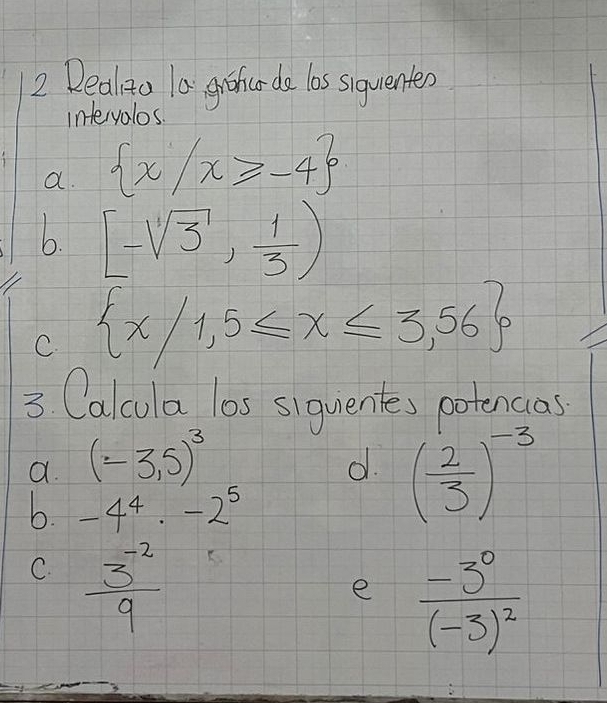 2 Realiza la gráfica de los siguientes
intervalos.
a. {x / x ⩾ -4}
b. [-√3, 1/3)
c. {x / 1,5 ≤ x ≤ 3,56}
3. Calcula los siguientes potencias.
a. (-3,5)³
d. (2/3)⁻³
b. -4⁴ . -2⁵
c. 3⁻²/9
e -3⁰/(-3)²